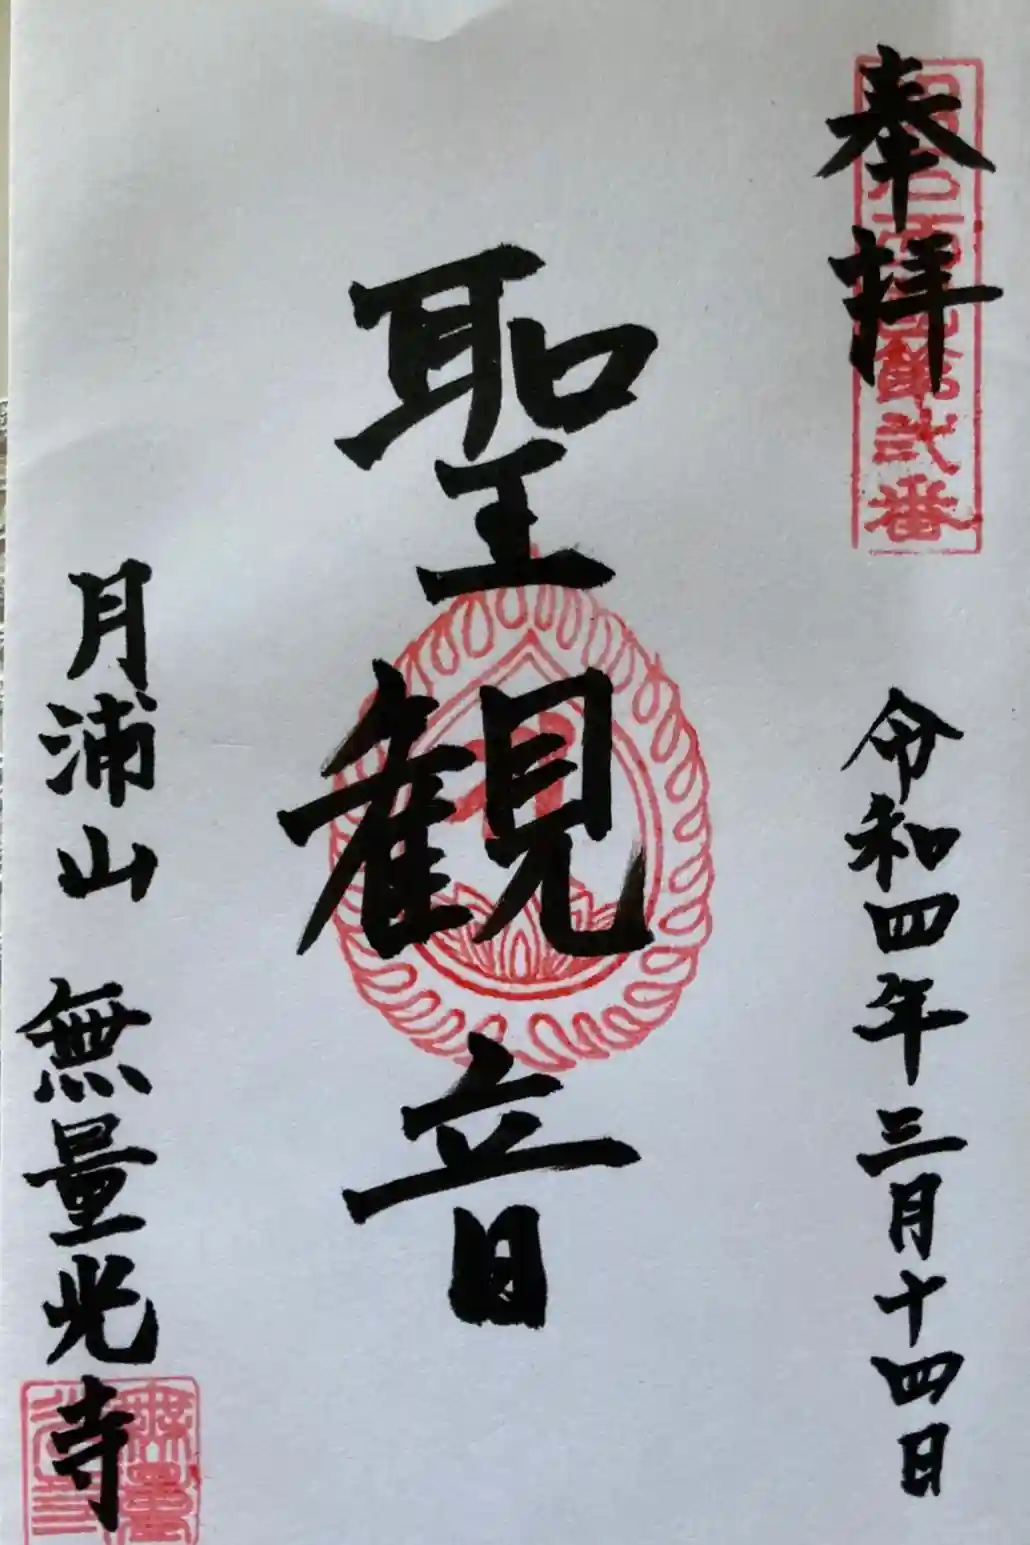 奉拝
令和四年三月十四日
聖観音
月浦山 無量光寺